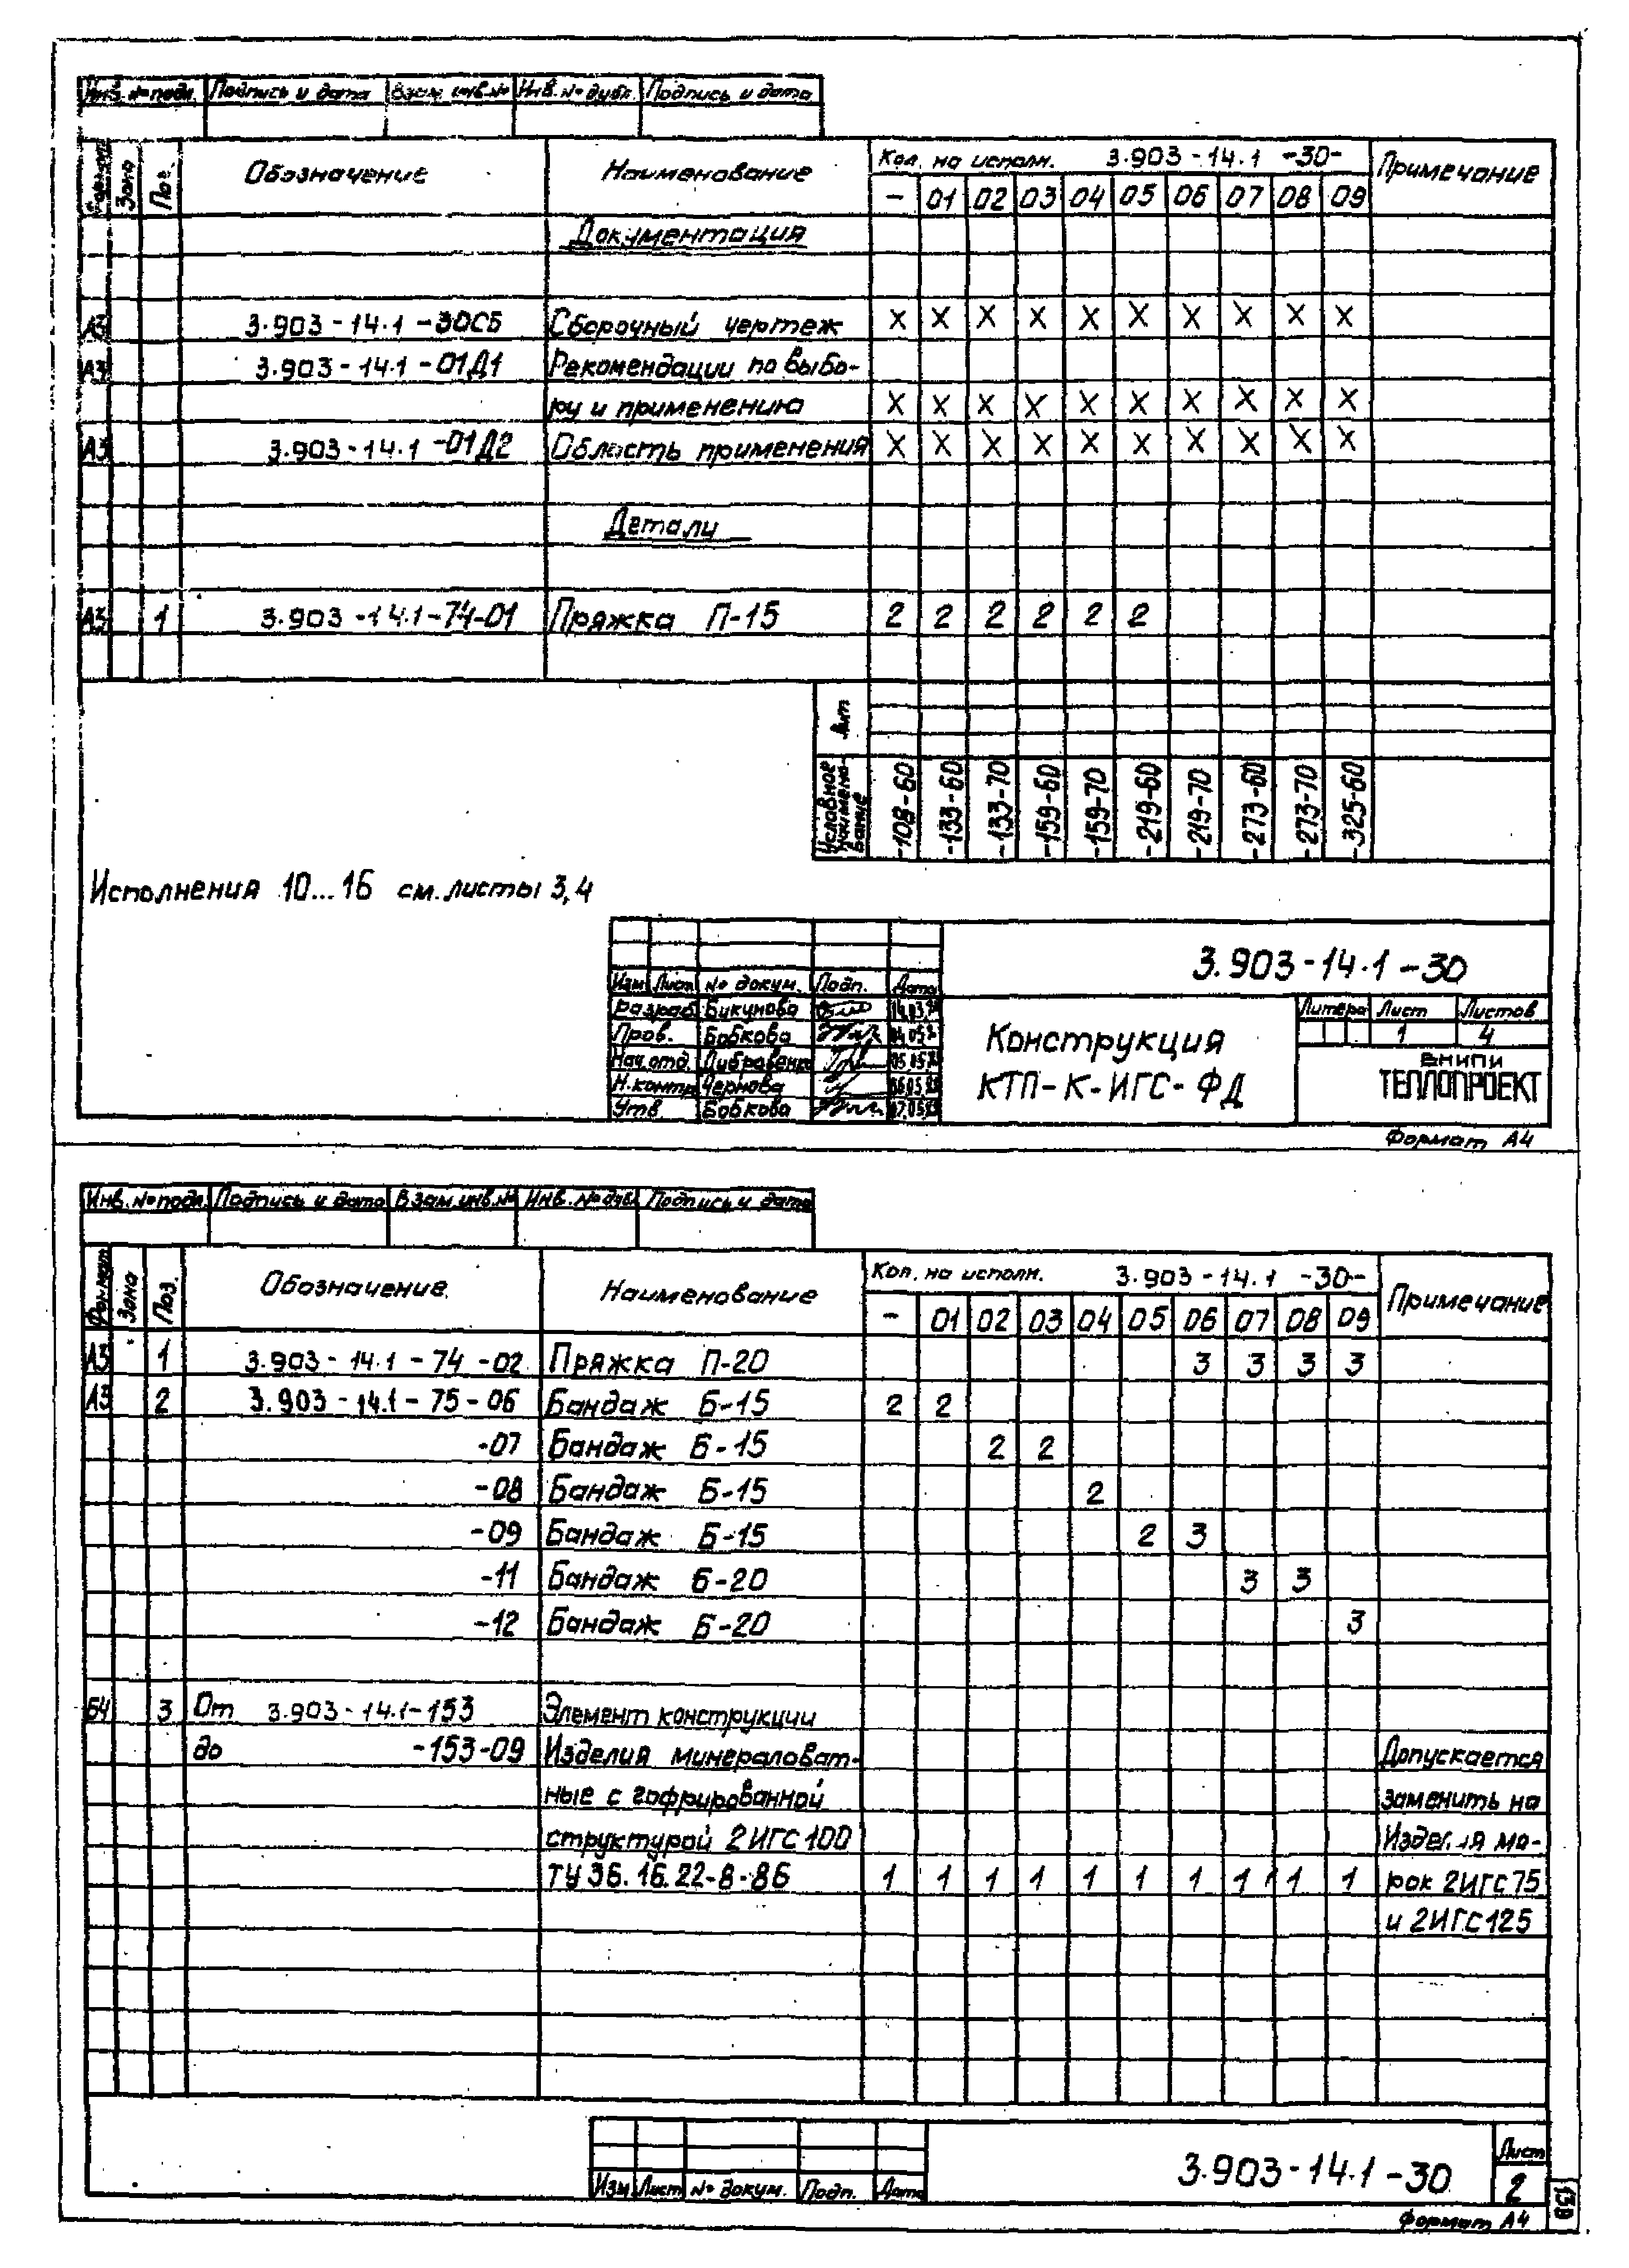 Инв. № подл. Подпись и дата Взам. инв. № Инв. № дубл. Подпись и дата
Формат Зона Поз. Обозначение Наименование Кол. на исполн. 3.903-14.1 -30- Примечание
- 01 02 03 04 05 06 07 08 09
Документация
А3 3.903-14.1-30СБ Сборочный чертеж X X X X X X X X X X
А3 3.903-14.1-01Д1 Рекомендации по выбо-
ру и применению X X X X X X X X X X
А3 3.903-14.1-01Д2 Область применения X X X X X X X X X X
Детали
А3 1 3.903-14.1-74-01 Пряжка П-15 2 2 2 2 2 2
Лит
Условное наименование -108-60 -133-60 -133-70 -159-60 -159-70 -219-60 -219-70 -273-60 -273-70 -325-60
Исполнения 10...16 см. листы 3,4
3.903-14.1-30
Изм Лист № докум. Подп. Дата
Разраб. Бикунова
Пров. Бобкова
Нач. отд.
Н. контр. Чернова
Утв. Бобкова
Конструкция
КТП-К-ИГС-ФД
Литера Лист Листов
1 4
ВНИПИ
ТЕПЛОПРОЕКТ
Формат А4
Инв. № подл. Подпись и дата Взам. инв. № Инв. № дубл. Подпись и дата
Формат Зона Поз. Обозначение Наименование Кол. на исполн. 3.903-14.1 -30- Примечание
- 01 02 03 04 05 06 07 08 09
А3 1 3.903-14.1-74-02 Пряжка П-20 3 3 3 3
А3 2 3.903-14.1-75-06 Бандаж Б-15 2 2
-07 Бандаж Б-15 2 2
-08 Бандаж Б-15 2
-09 Бандаж Б-15 2 3
-11 Бандаж Б-20 3 3
-12 Бандаж Б-20 3
Б4 3 От 3.903-14.1-153 Элемент конструкции
до -153-09 Изделия минераловат- Допускается
ные с гофрированной заменить на
структурой 2ИГС100 Изделия ма-
ТУ 36.16.22-8-86 1 1 1 1 1 1 1 1 1 1 рок 2ИГС75
и 2ИГС125
Изм Лист № докум. Подп. Дата
3.903-14.1-30
Лист
2
Формат А4